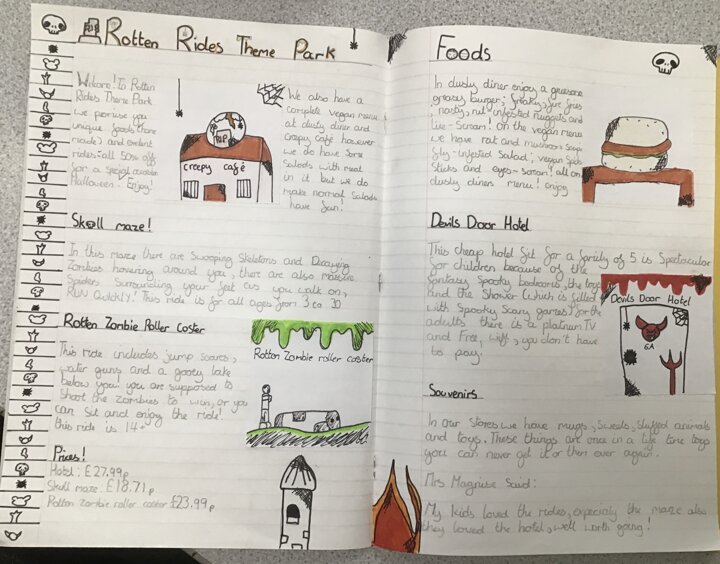 Rotten Rides Theme Park
Welcome! To Rotten
Rides Theme Park
we promise you
unique foods (home
made) and exelent
rides! all 50% off
for a special occasion
Halloween. Enjoy!
RIP
creepy café
We also have a
complete vegan menu
at dusty diner and
Creepy Café however
we do have some
Salads with meat
in it but we do
make normal Salads
have fun!
Skull maze!
In this maze there are Swooping Skeletons and Decaying
Zombies hovering around you, there are also massive
Spiders Surrounding your feet as you walk on,
RUN Quickly! This ride is for all ages from 3 to 30
Rotten Zombie Roller Coster
This ride includes jump scares,
water guns and a gooey lake
below you! you are supposed to
Shoot the zombies to win, or you
can Sit and enjoy the ride!
this ride is 14+
Rotten Zombie roller coaster
Prices!
Hotel: £27.99p
Skull maze: £18.71p
Rotten Zombie roller coster £23.99p
Foods
In dusty diner enjoy a gruesome
greasy burger, freaky, fur fries
nasty, nut-infested nuggets and
Ice-Scream! On the vegan menu
we have rat and mushroom Soup
fly-infested Salad, vegan
Sticks and eyes-scream! all on
dusty diners menu! enjoy
Devils Door Hotel
This cheap hotel fit for a family of 5 is Spectacular
for children because of the
fantasy Spooky bedrooms, the toys
and the Shower (which is filled
with Spooky Scary games) for the
adults there is a platinum TV
and Free, wiffi, you don't have
to pay.
Devils Door Hotel
6A
Souvenirs
In our Stores we have mugs, Sweets, Stuffed animals
and toys. These things are once in a life time toys
you can never get it or them ever again.
Mrs Magnuse Said:
My kids loved the rides, especialy the maze also
they loved the hotel, well worth going!